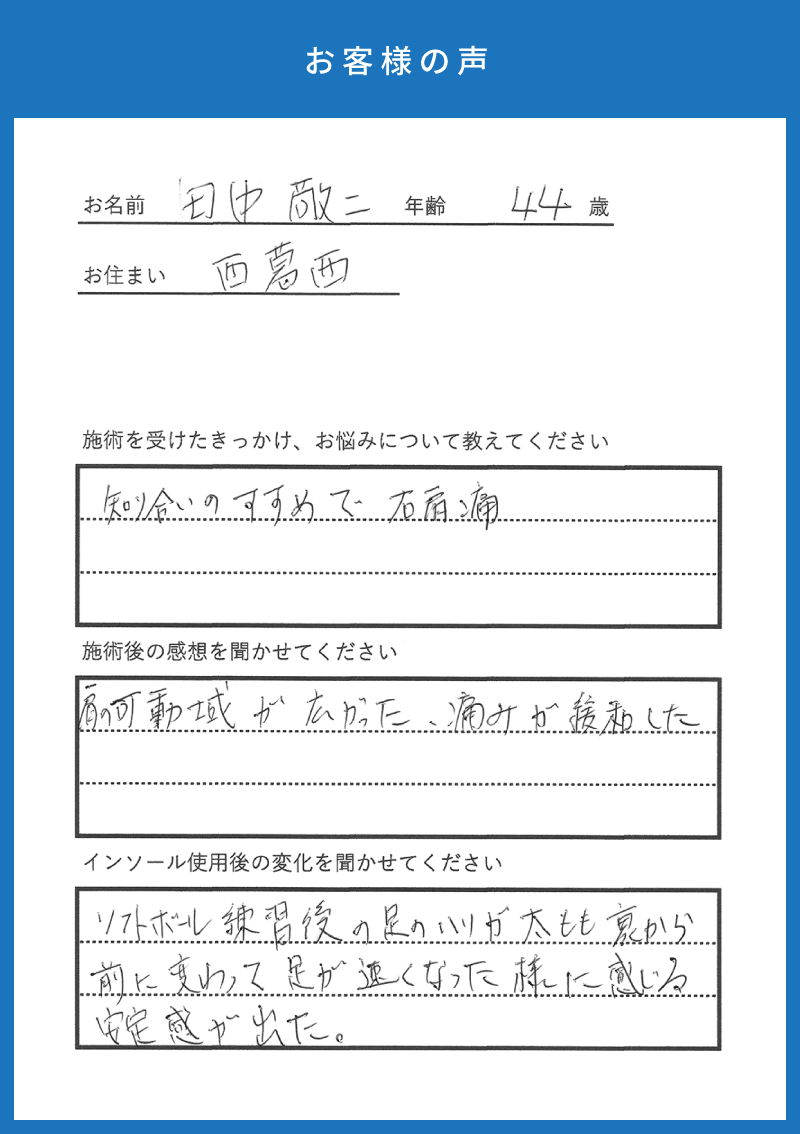 お客様の声
お名前 田中 敬二 年齢 44 歳
お住まい 西葛西
施術を受けたきっかけ、お悩みについて教えてください
知り合いのすすめで 右肩痛
施術後の感想を聞かせてください
肩の可動域が広がった、痛みが緩和した
インソール使用後の変化を聞かせてください
ソフトボール練習後の足のハリが太もも裏から
前に変わって足が速くなった様に感じる
安定感が出た。